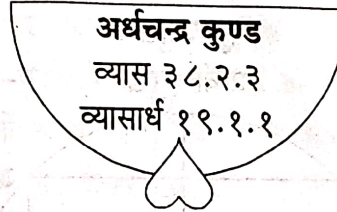 अर्धचन्द्र कुण्ड
व्यास ३८.२.३
व्यासार्ध १९.१.१